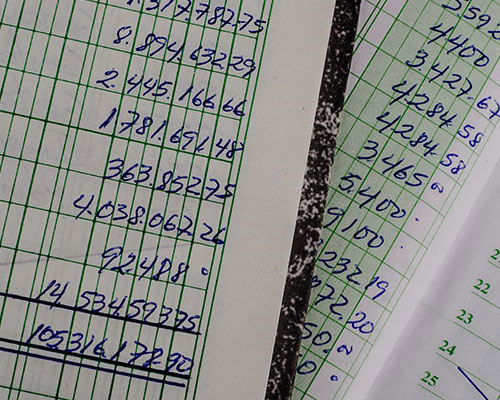 8.894.632.29
2.445.166.66
1.781.691.48
363.852.75
4.038.067.26
92.488
14 534593.75
105316.178.90
4400
3427.67
4284.58
4284.58
3.465
5.400
9100
232.19
72.20
50.
0
22
23
24
25